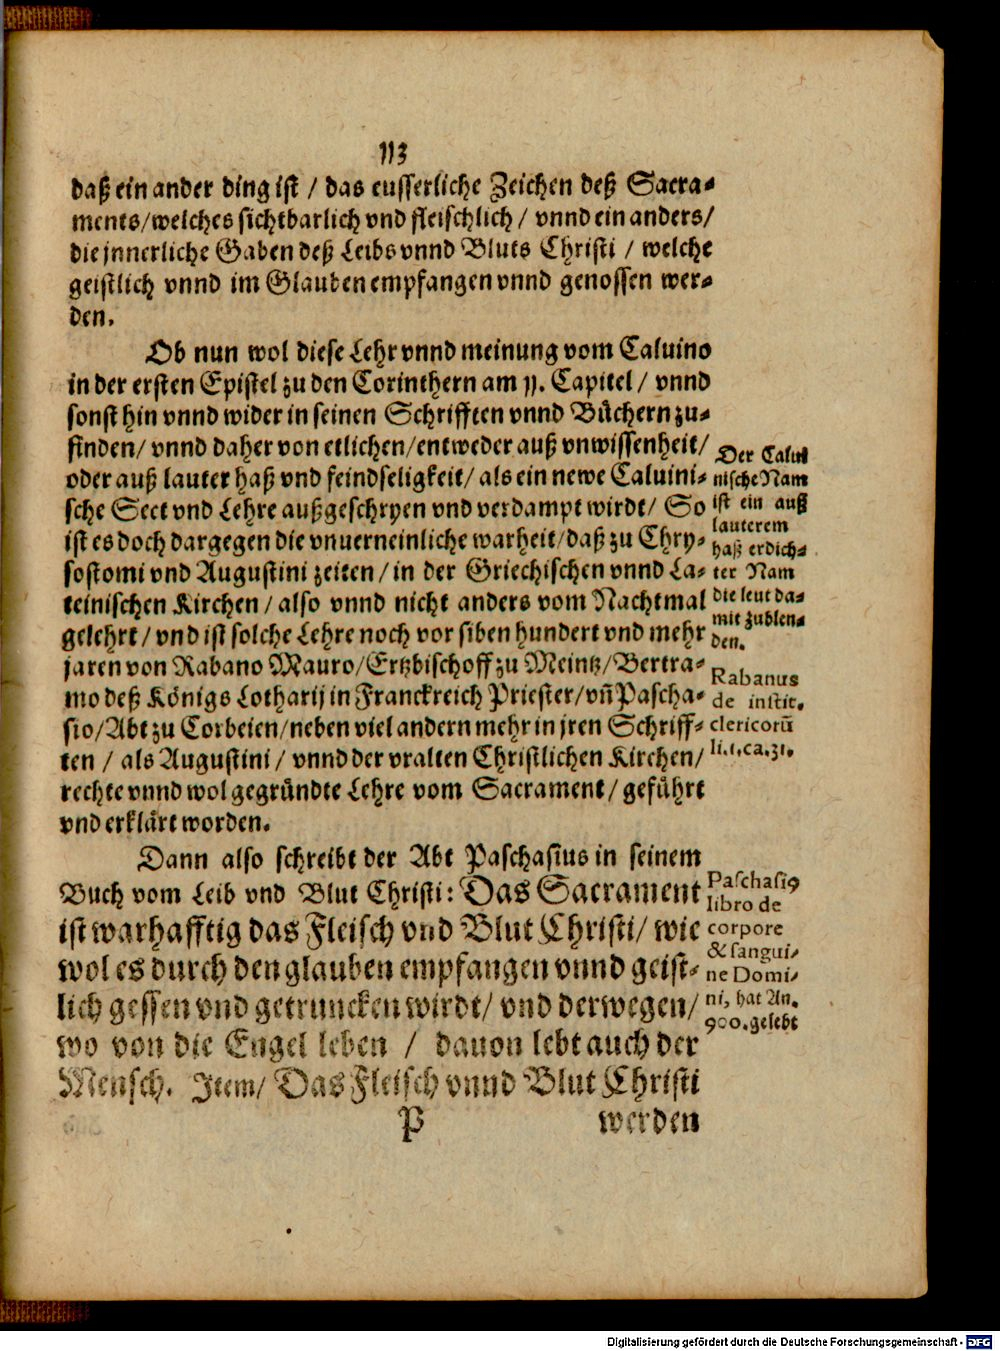 113
daß ein ander ding ist / das eusserliche Zeichen deß Sacra⸗
ments/welches sichtbarlich vnd fleischlich / vnnd ein anders/
die jnnerliche Gaben deß Leibs vnnd Bluts Christi / welche
geistlich vnnd im Glauben empfangen vnnd genossen wer⸗
den.
Ob nun wol diese Lehr vnnd meinung vom Caluino
in der ersten Epistel zu den Corinthern am 11. Capitel / vnnd
sonst hin vnnd wider in seinen Schrifften vnnd Büchern zu⸗
finden/ vnnd daher von etlichen/entweder auß vnwissenheit/
oder auß lauter haß vnd feindseligkeit/ als ein newe Caluini⸗
sche Sect vnd Lehre außgeschryen vnd verdampt wirdt/ So
ist es doch dargegen die vnuerneinliche warheit/daß zu Chry⸗
sostomi vnd Augustini zeiten / in der Griechischen vnnd La⸗
teinischen Kirchen / also vnnd nicht anders vom Nachtmal
gelehrt/ vnd ist solche Lehre noch vor siben hundert vnd mehr
jaren von Rabano Mauro/Ertzbischoff zu Meintz/Bertra⸗
mo deß Königs Lotharij in Franckreich Priester/vñ Pascha⸗
sio/Abt zu Corbeien/neben viel andern mehr in jren Schriff⸗
ten / als Augustini / vnnd der vralten Christlichen Kirchen/
rechte vnnd wol gegründte Lehre vom Sacrament/ geführt
vnd erklärt worden.
Der Calui
nische Nam
ist ein auß
lauterem
haß erdich⸗
ter Nam
die leut da⸗
mit zublen⸗
den.
Rabanus
de instit.
clericorũ
li.1.ca.31.
Dann also schreibt der Abt Paschasius in seinem
Buch vom Leib vnd Blut Christi: Das Sacrament
ist warhafftig das Fleisch vnd Blut Christi/ wie
wol es durch den glauben empfangen vnnd geist⸗
lich gessen vnd getruncken wirdt/ vnd derwegen/
wo von die Engel leben / dauon lebt auch der
Mensch. Item/ Das Fleisch vnnd Blut Christi
Paschasiꝰ
libro de
corpore
& sangui-
ne Domi-
ni, hat An.
900.gelebt
P
werden
Digitalisierung gefördert durch die Deutsche Forschungsgemeinschaft - DFG